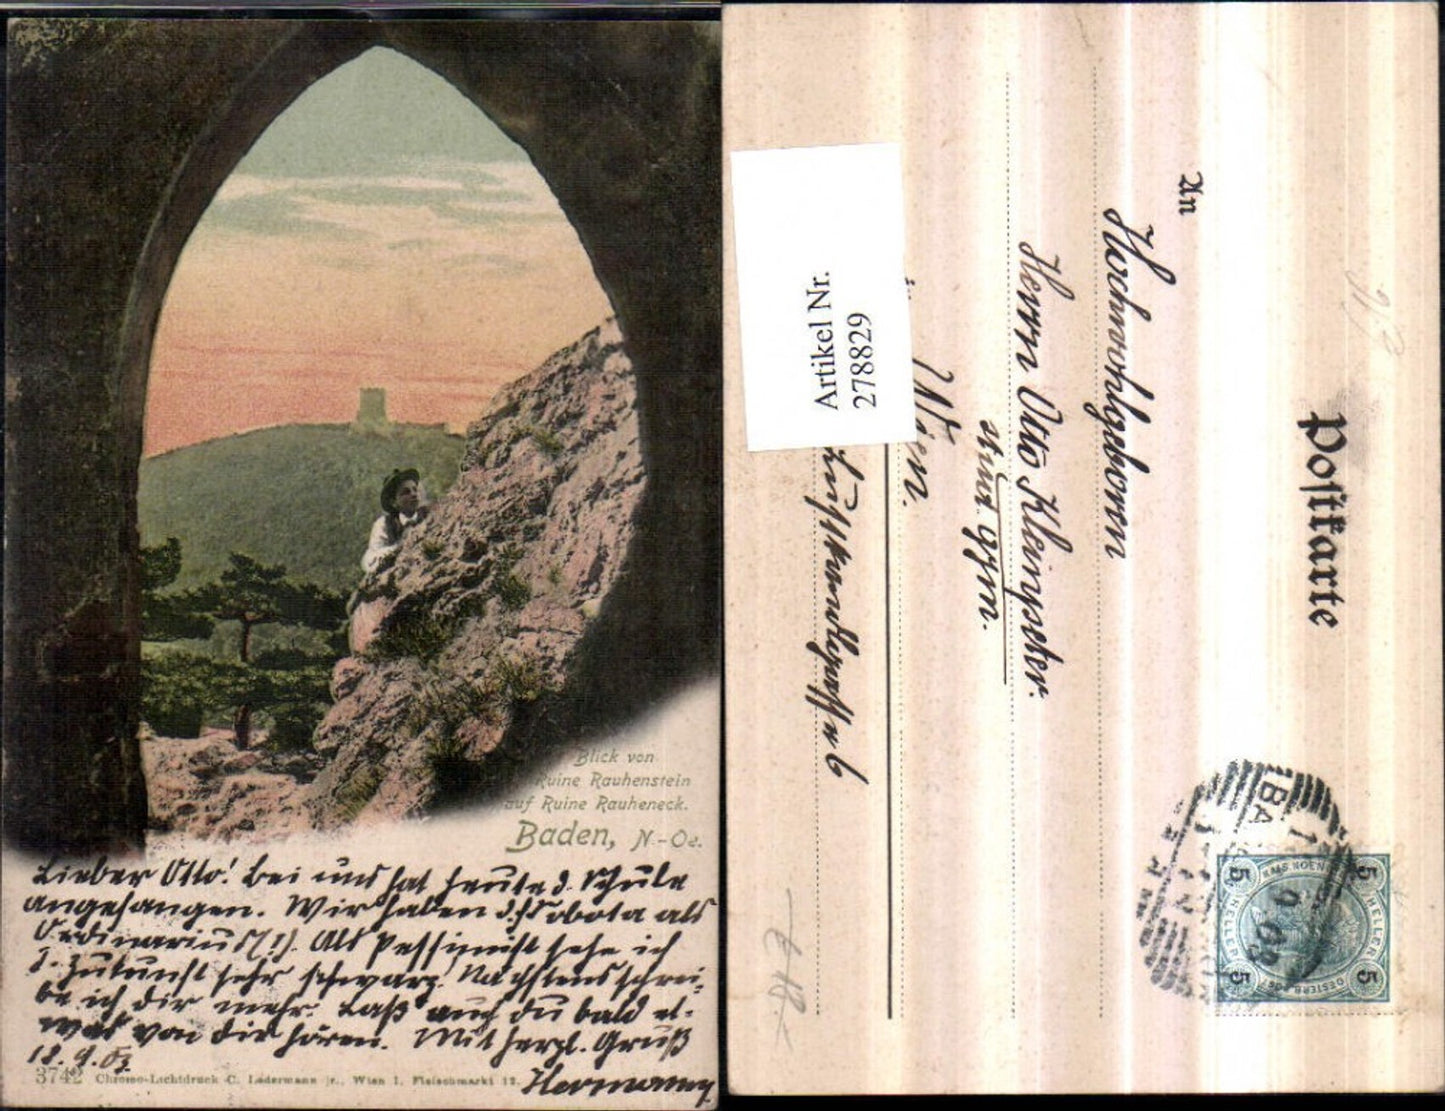 Blick von
Ruine Rauhenstein
auf Ruine Rauheneck.
Baden, N.-Oe.
Lieber Otto! Bei uns hat heute d. Schule
angefangen. Wir haben d. Sobota als
Ordinarius (!). Als Pessimist sehe ich
d. Zukunft sehr schwarz. Nächstens schrei-
be ich dir mehr. Laß auch du bald et-
was von dir hören. Mit herzl. Gruß
18.9.03. Hermann
3742 Chromo-Lichtdruck C. Ledermann jr., Wien I. Fleischmarkt 12.
Postkarte
An
Hochwohlgeboren
Herrn Otto Kleinpeter
stud. gym.
Wien.
6
Artikel Nr.
278829
BA
5 HELLER 5
5 HELLER 5